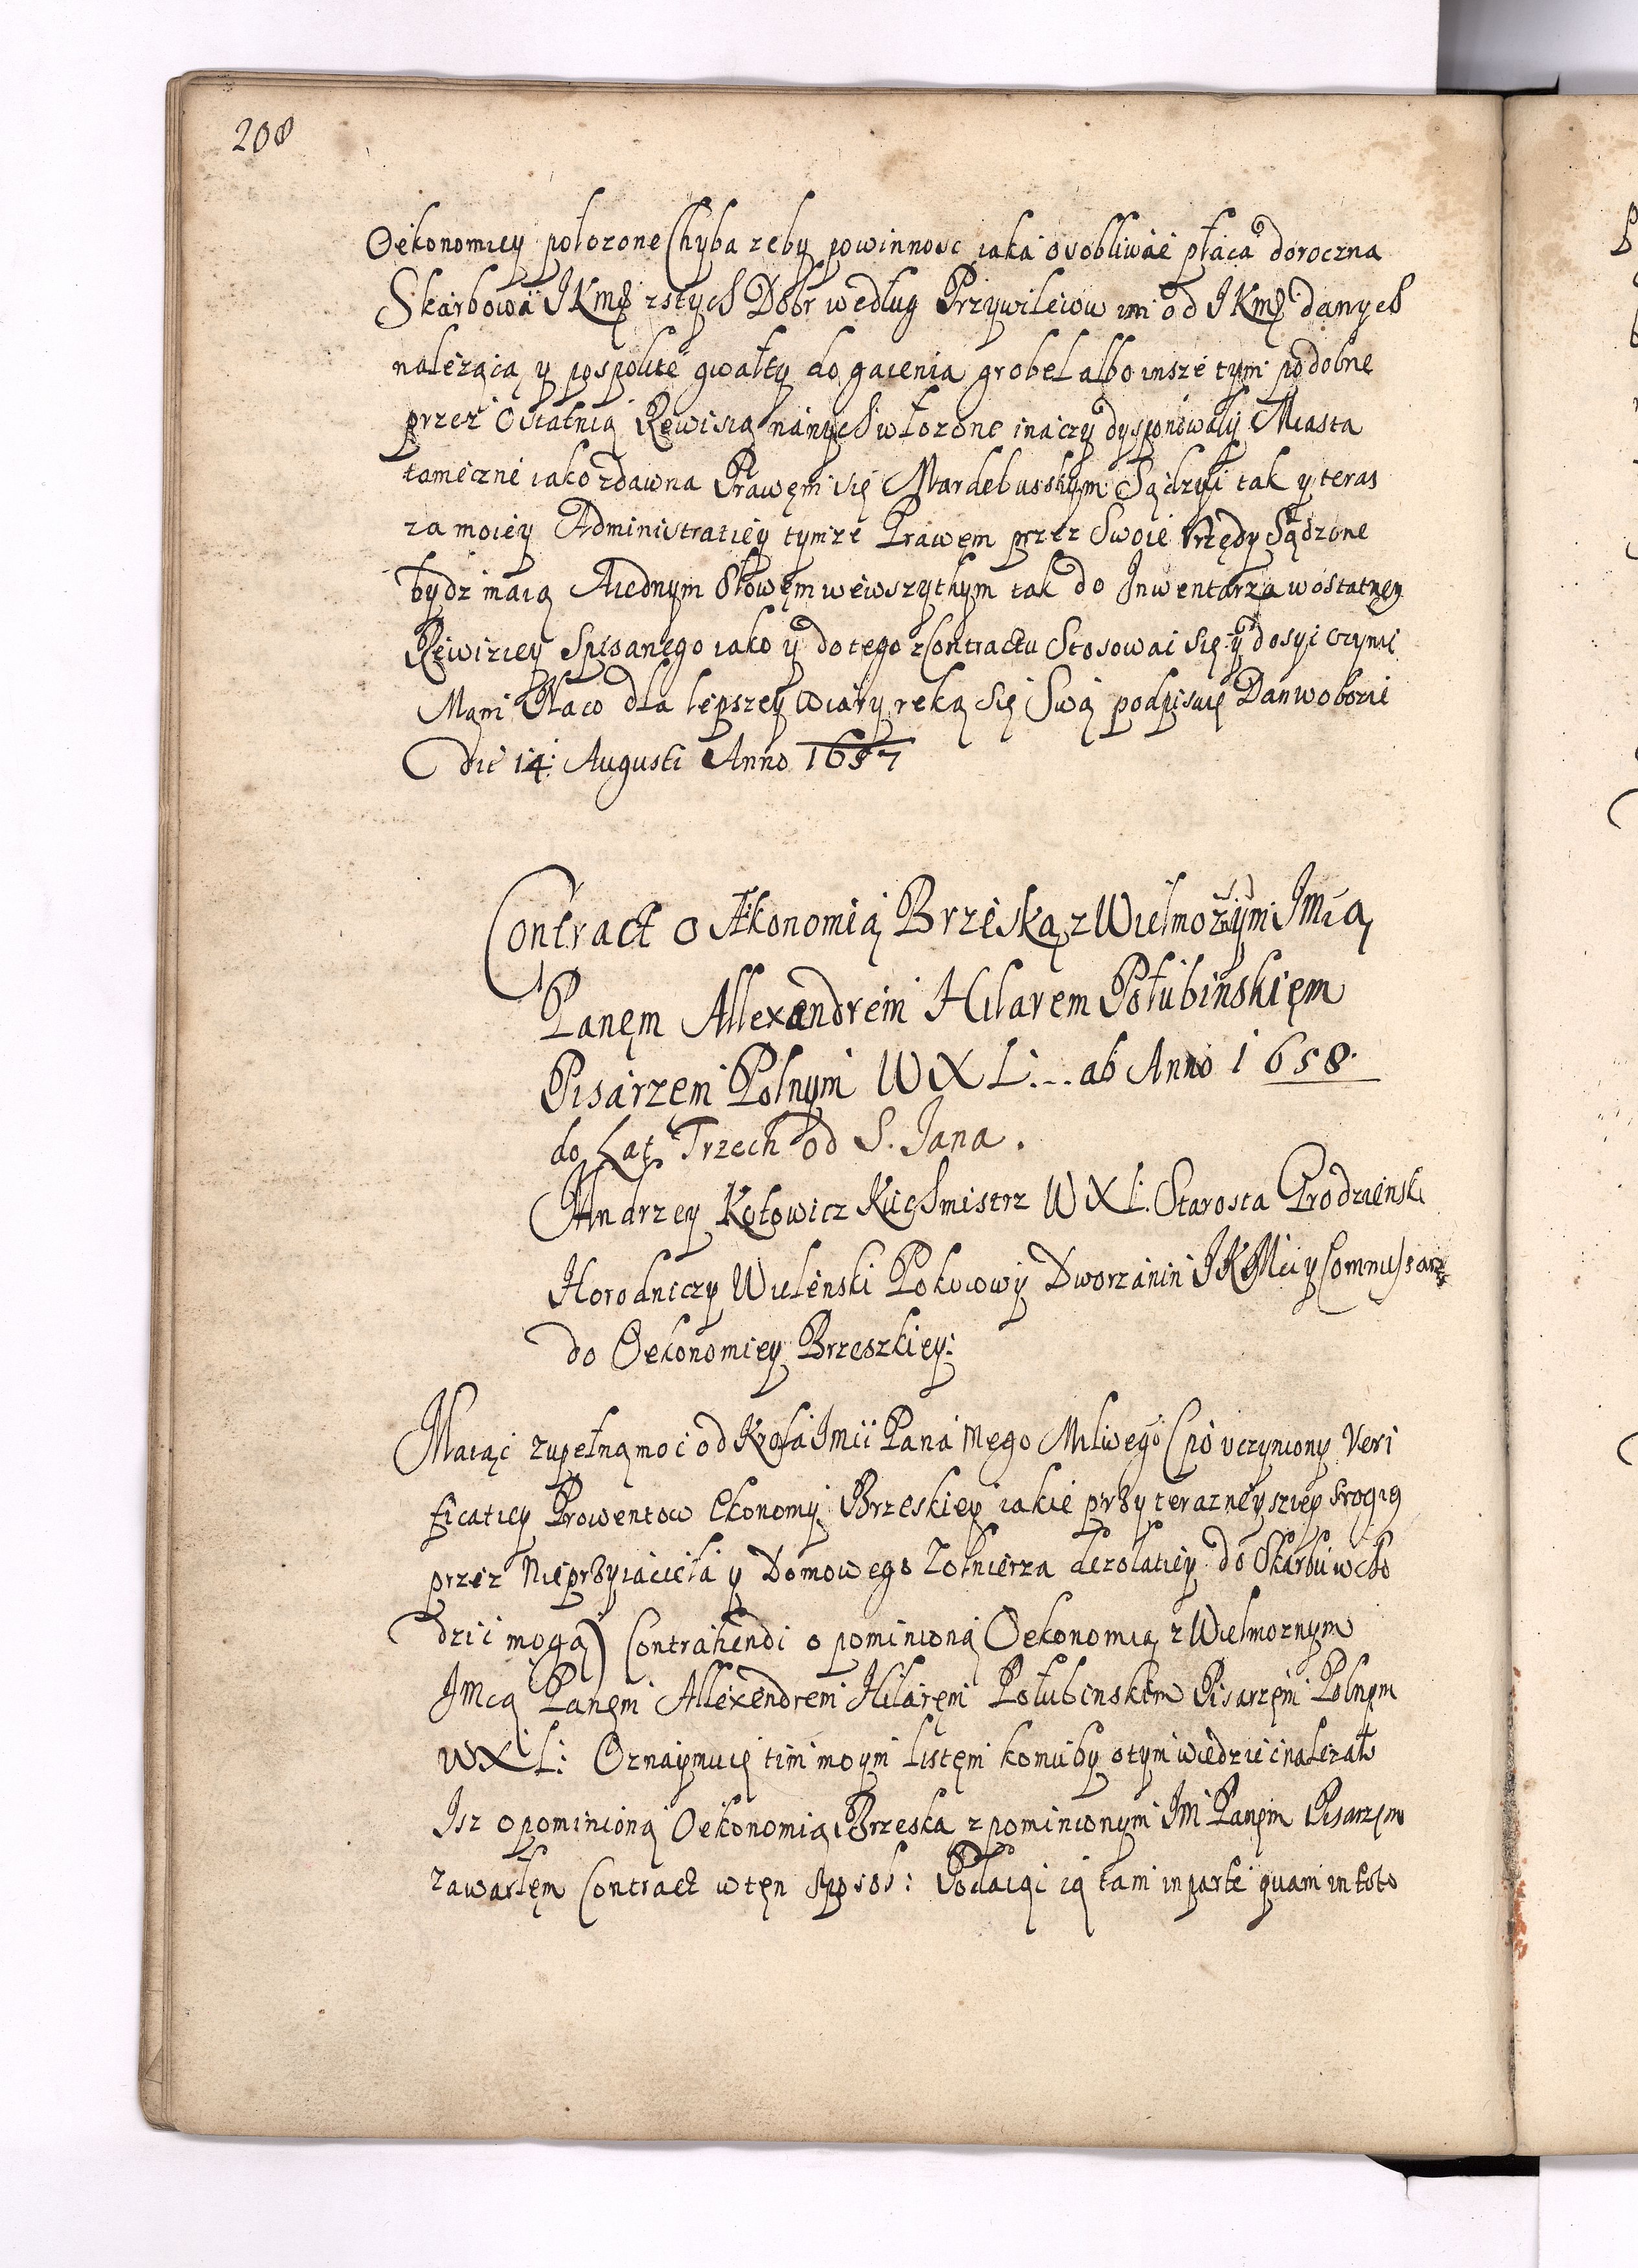 208
Oekonomiey połozone Chyba zeby powinnosc iaka osobliwae płaca doroczna
Skarbowa JKmę zstych Dobr według Przywileiow im od JKmę danych
nalezącą y pospolite gwałty do gacenia grobel albo insze tym podobne
przez Ostatnią Rewisią nanych włozone inaczy dysponowały Miasta
tameczne iako zdawna Prawęm się Mardebusskym Sądzyli tak y teras
za moiey Administratiey tymze Prawem przez Swoie Vrzędy Sądzone
bydz maią Aiednym Słowęm wewszytkym tak do Inwentarza wostatney
Rewiziey Spisanego iako y do tego Contractu Stosowac Się y dosyc czynic
Mam Naco dla lepszey wiary ręką Się Swą podpisuię Dan wobozie
die 14 Augusti Anno 1657
Contract o Ækonomią Brzeską z Wielmożnym Jmcią
Panęm Allexandrem Hilarem Połubinskięm
Pisarzem Polnym W X L: ab Anno 1658
do Lat Trzech od S. Jana.
Andrzey Kotowicz Kuchmistrz W X L. Starosta Grodzienski
Horodniczy Wilenski Pokoiowy Dworzanin JKMci y Commissarz
do Oekonomiey Brzeszkiey:
Maiąc zupełną moc od Krola Jmci Pana mego Mliwego (po vczyniony Veri
ficatiey Prowentow Ekonomy Brzeskiey iakie przy terazneyszey srogiy
przez Nieprzyiaciela y Domowego Zołnierza dezolatiey do Skarbu wcho
dzic mogą) Contrahendi o pomienioną Oekonomią z Wielmoznym
Jmcią Panęm Allexendrem Hilaręm Połubinskim Pisarzęm Polnym
W X L: Oznaymuię tim moym listęm komuby otym wiedziec nalezało
Isz o pomienioną Oekonomią Brzeska z pomienionym Jm Panęm Pisarzęm
zawarłęm Contract w tęn sposob: Podaiąc ią tam in parte quam in toto